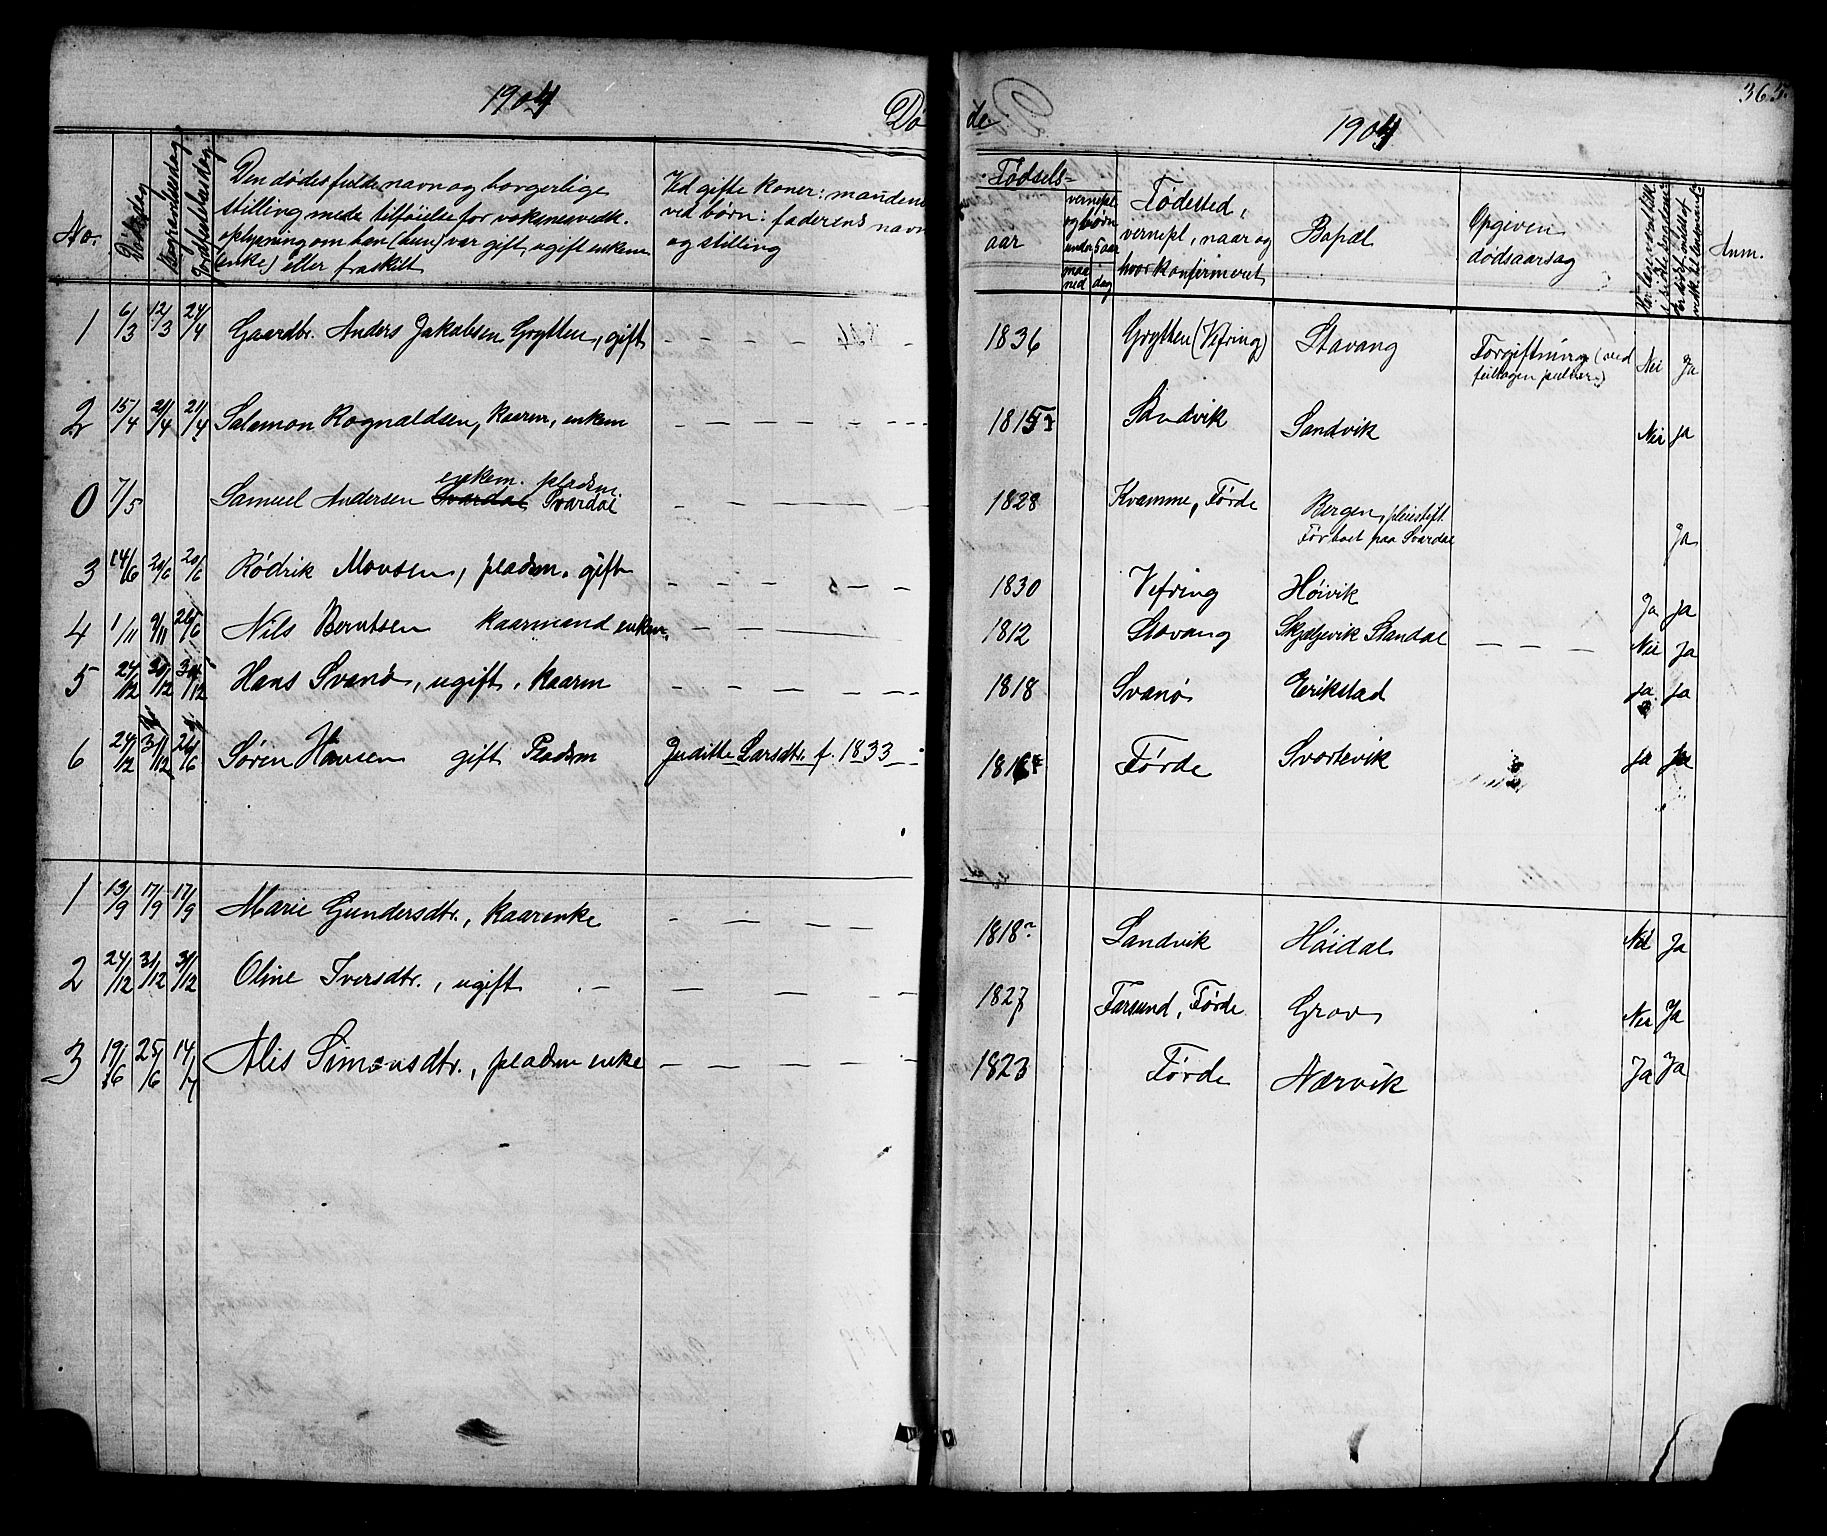 1904 Døde. 1904 365.
No.
Dødsdag
Begravelsesdag
Jordfæstelsesdag
Den dødes fulde navn og borgerlige
stilling med tilføielse for voksnes vedk.
oplysning om han (hun) var gift, ugift enkem
(enke) eller fraskilt
Ved gifte koner: mandens
ved børn: faderens navn
og stilling
Fødsels-
aar
vernepl.
og børn
under 5 aar
maa
ned
dag
Fødested,
vernepl, naar og
hvor konfirmeret
Bopæl
Opgiven
dødsaarsag
Anm.
1 6/3 12/3 24/4 Gaardbr. Anders Jakobsen Grytten, gift 1836 Grytten (Vefring) Stavang Forgiftning (ved
feiltagen pulver) Nei Ja
2 15/4 21/4 21/4 Salomon Rognaldsen, kaarm, enkem 1815 Sandvik Sandvik Nei Ja
enkem. pladsm.
0 7/5 Samuel Andersen Svardal Svardal 1828 Kvamme, Førde Bergen, pleiestift.
Før boet paa Svardal Ja
3 14/6 20/6 20/6 Rødrik Monsen, pladsm. gift 1830 Vefring Høivik Ja Ja
4 1/11 9/11 26/6 Nils Berntsen kaarmand enkem. 1812 Stavang Skjeljevik Standal Nei Ja
5 24/12 31/12 Hans Svanø, ugift, kaarm 1818 Svanø Erikstad Ja Ja
6 24/12 31/12 26/6 Søren Hansen gift Pladsm Juditte Larsdtr. f. 1833 Førde Svortevik Ja Ja
1 13/9 17/9 17/9 Marie Gundersdtr., kaarenke 1818? Sandvik Høidal Nei Ja
2 24/12 31/12 31/12 Oline Iversdtr., ugift 1827 Farsund, Førde Grov Nei Ja
3 19/6 25/6 14/7 Alis Simonsdtr., pladsm enke 1823 Førde Nærvik Ja Ja